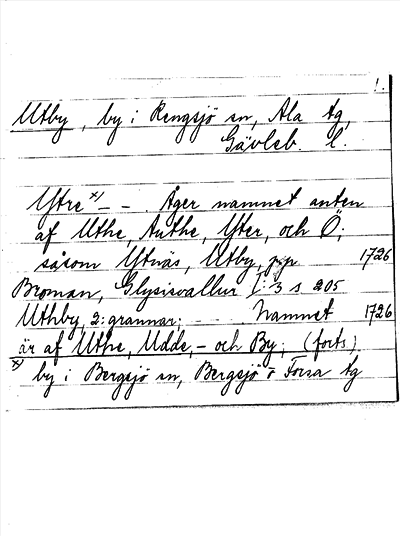 1.
Utby, by i Rengsjö sn, Ala tg,
Gävleb. l.
Ytre x) – – . Äger namnet anten
af Uthe, Authe, Yter, och Ö;
såsom Ytnäs, Utby, pp 1726
Broman, Glysisvallur I: 3 s 205
Uthby, 2: grannar; Namnet 1726
är af Uthe, Udde, – och By; (forts)
x) by i Bergsjö sn, Bergsjö o Forsa tg